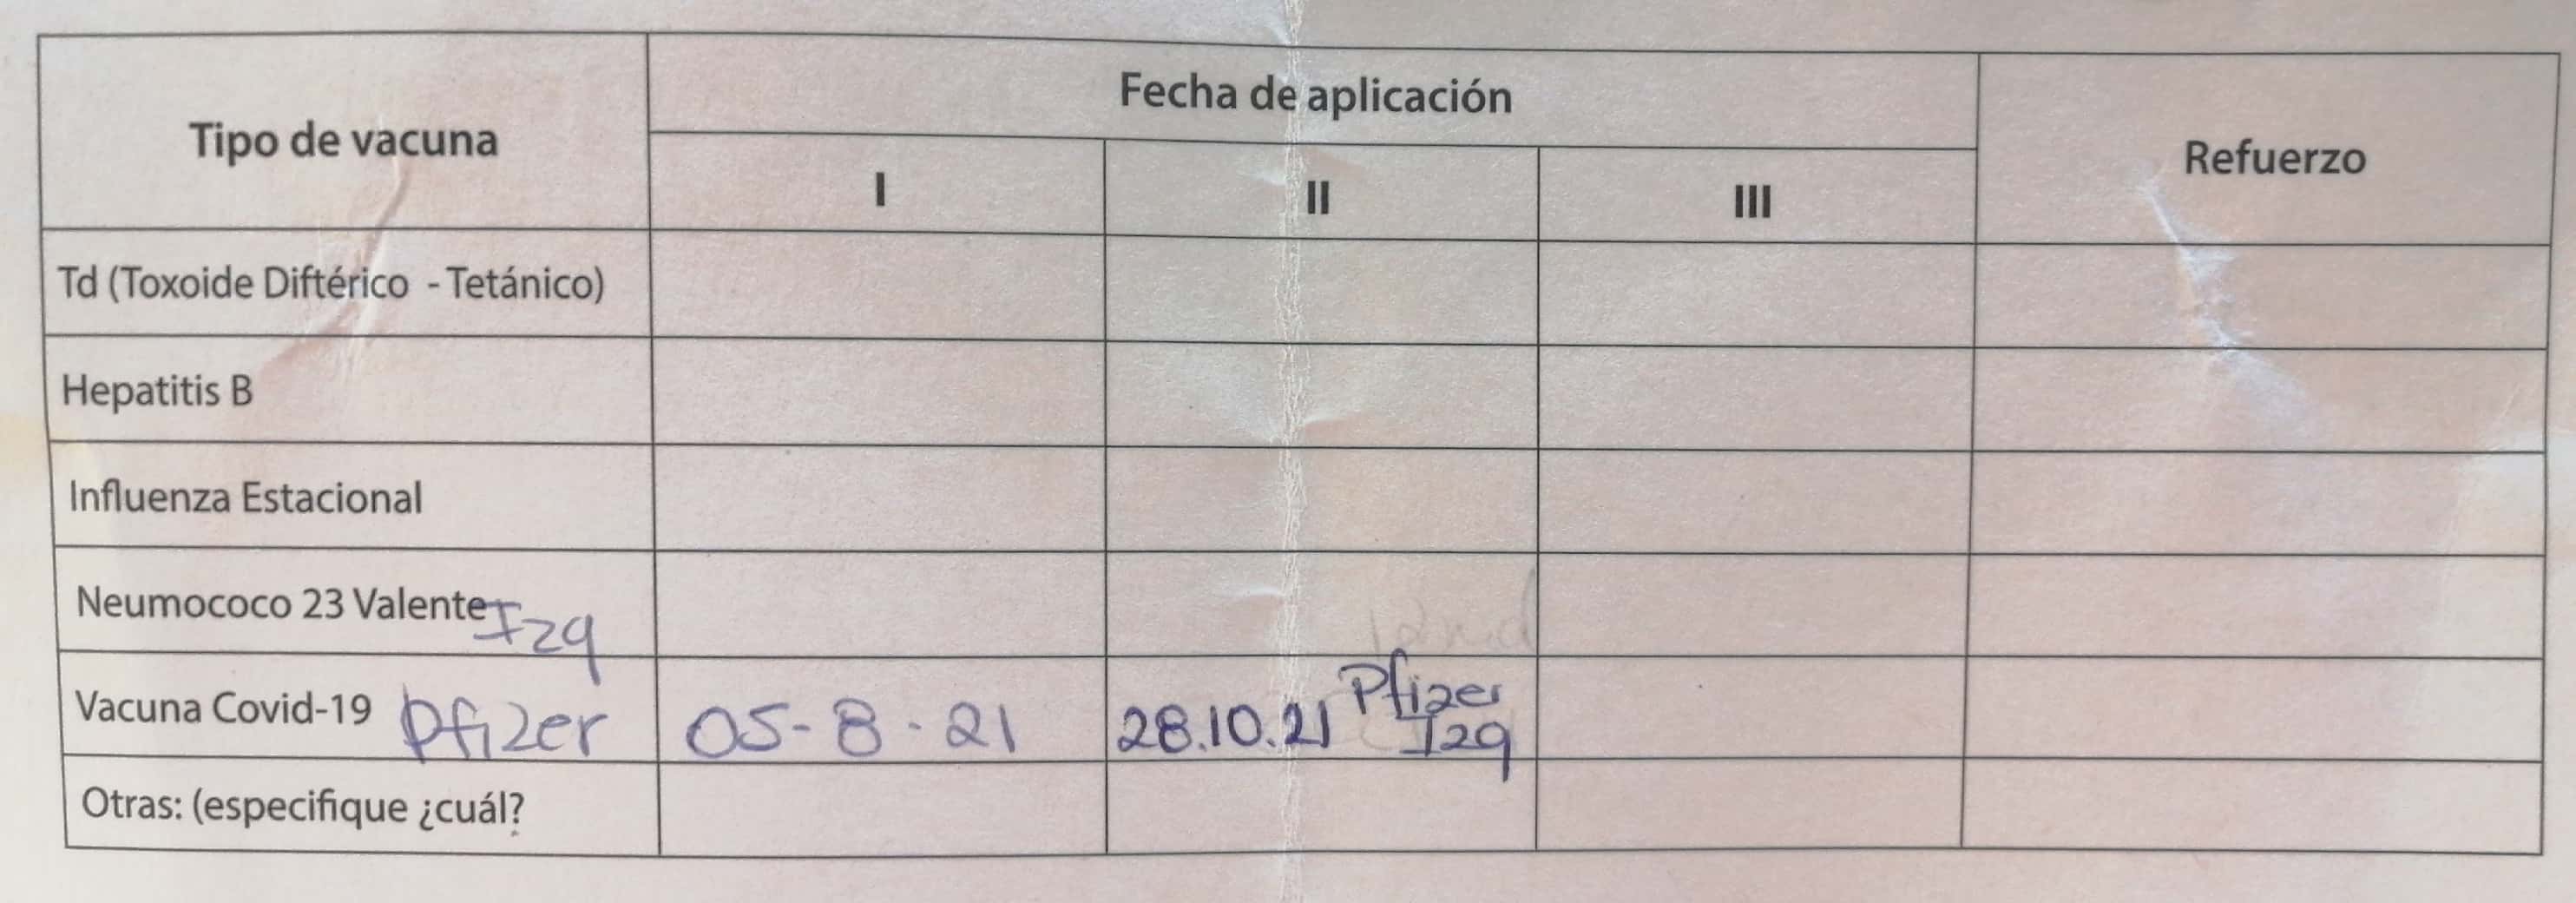 Tipo de vacuna
Fecha de aplicación
Refuerzo
I
II
III
Td (Toxoide Diftérico - Tetánico)
Hepatitis B
Influenza Estacional
Neumococo 23 Valente
Izq
Vacuna Covid-19 Pfizer
05-8-21
28.10.21 Pfizer
Izq
Otras: (especifique ¿cuál?